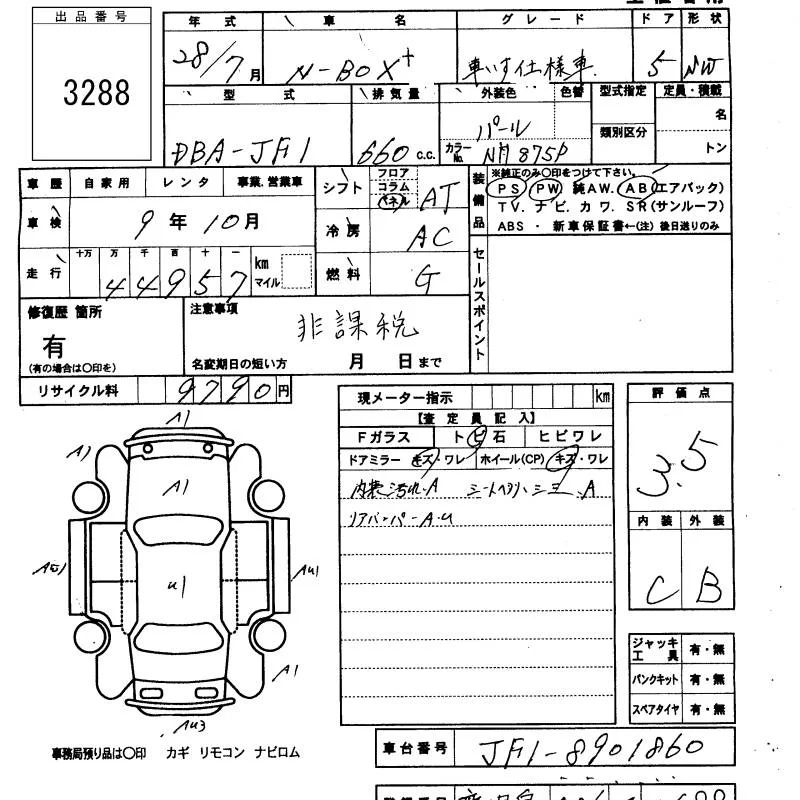 出品番号
3288
年式 車名 グレード ドア 形状
28/7月 N-BOX+ 車いす仕様車 5 NW
型式 排気量 外装色 色替 型式指定 定員・積載
DBA-JF1 660 c.c. パール カラーNo. NH875P 類別区分 名 トン
車歴 自家用 レンタ 事業.営業車
車検 9年10月
走行 十万 万 千 百 十 一
44957 km マイル
シフト フロア コラム パネル AT
冷房 AC
燃料 G
装備品
※純正のみ〇印をつけて下さい。
PS PW 純AW. AB(エアバック)
TV. ナビ. カワ. SR(サンルーフ)
ABS ・ 新車保証書←(注) 後日送りのみ
セールスポイント
修復歴 箇所
有
(有の場合は〇印を)
注意事項
非課税
名変期日の短い方 月 日まで
リサイクル料 9790円
現メーター指示 km
【査定員記入】
Fガラス トビ石 ヒビワレ
ドアミラー キズ・ワレ ホイール(CP) キズ・ワレ
内装汚れ.A
リアバンパーA.U
評価点
3.5
内装 外装
C B
ジャッキ 工具 有・無
パンクキット 有・無
スペアタイヤ 有・無
A1
A1
A1
U1
AU1
A1
AU3
事務局預り品は〇印 カギ リモコン ナビロム
車台番号 JF1-8901860